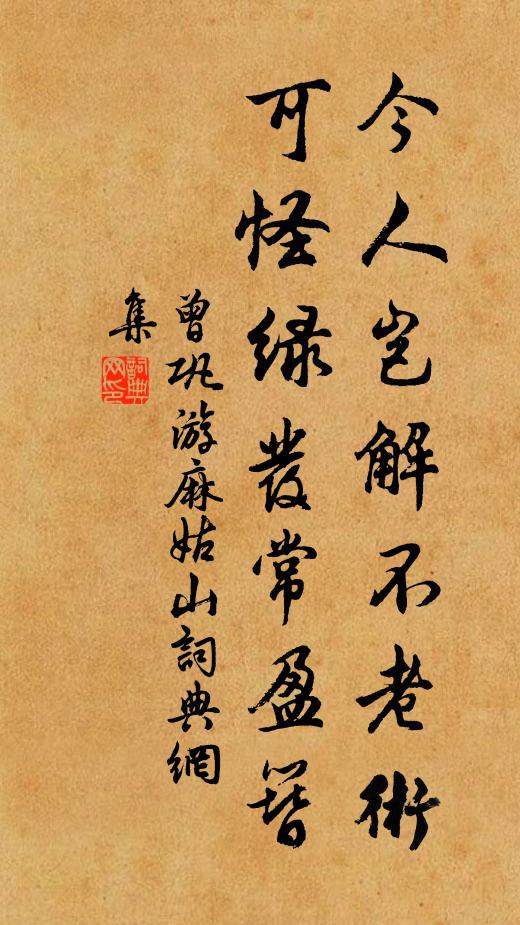 今人岂解不老術
可怪緑發常盈簪
曾巩游麻姑山詞典網
集
詞典網印